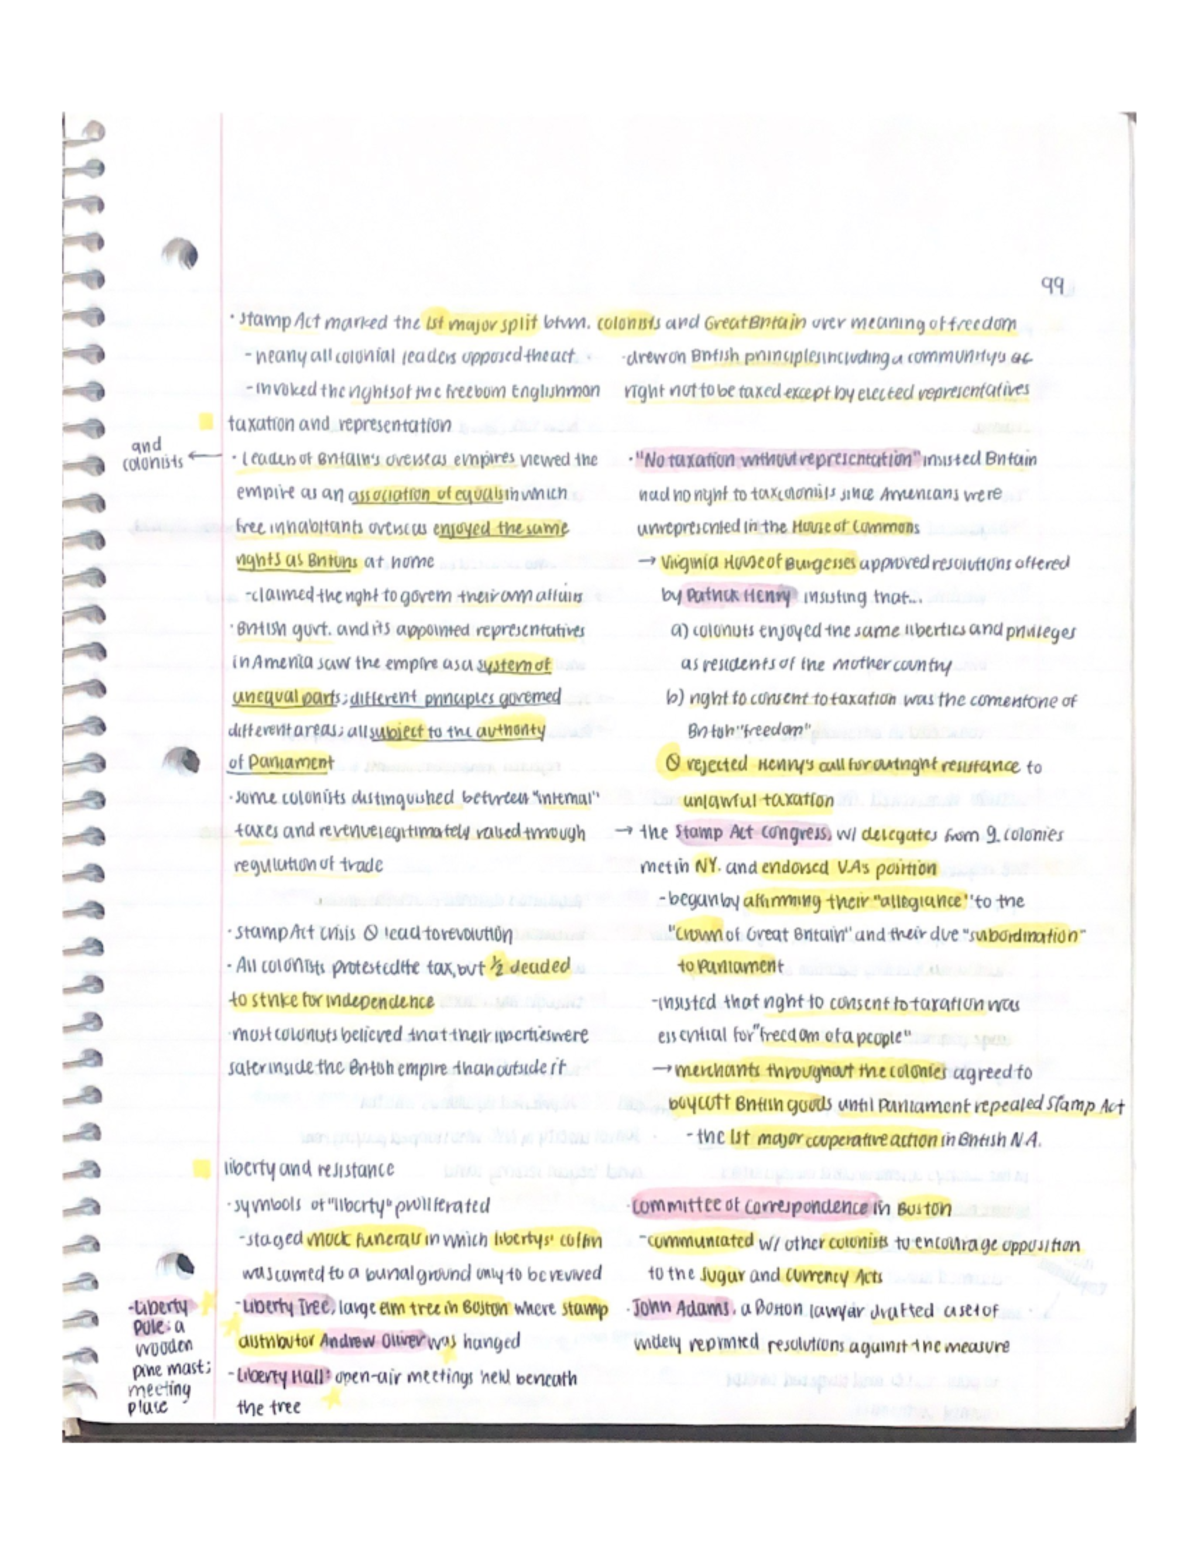 99
· Stamp Act marked the 1st major split btwn. colonists and Great Britain over meaning of freedom
- nearly all colonial leaders opposed the act.
- invoked the rights of the freeborn Englishman
· drew on British principles including a community's
right not to be taxed except by elected representatives
taxation and representation
and
colonists ←
· Leaders of Britain's overseas empires viewed the
empire as an association of equals in which
free inhabitants overseas enjoyed the same
rights as Britons at home
- claimed the right to govern their own affairs
· British govt. and its appointed representatives
in America saw the empire as a system of
unequal parts; different principles governed
different areas; all subject to the authority
of Parliament
· some colonists distinguished between "internal"
taxes and revenue legitimately raised through
regulation of trade
· Stamp Act crisis ∅ lead to revolution
· All colonists protested the tax, but 1/2 decided
to strike for independence
· most colonists believed that their liberties were
safer inside the British empire than outside it
· "No taxation without representation" insisted Britain
had no right to tax colonists since Americans were
unrepresented in the House of Commons
→ Virginia House of Burgesses approved resolutions offered
by Patrick Henry insisting that...
a) colonists enjoyed the same liberties and privileges
as residents of the mother country
b) right to consent to taxation was the cornerstone of
British "freedom"
∅ rejected Henry's call for outright resistance to
unlawful taxation
→ the Stamp Act Congress, w/ delegates from 9 colonies
met in NY. and endorsed VA's position
- began by affirming their "allegiance" to the
"Crown of Great Britain" and their due "subordination"
to Parliament
- insisted that right to consent to taxation was
essential for "freedom of a people"
→ merchants throughout the colonies agreed to
boycott British goods until Parliament repealed Stamp Act
- the 1st major cooperative action in British N.A.
liberty and resistance
· symbols of "liberty" proliferated
- staged mock funerals in which libertys' coffin
was carried to a burial ground only to be revived
- Liberty Tree, large elm tree in Boston where stamp
distributor Andrew Oliver was hanged
- Liberty Hall: open-air meetings held beneath
the tree
- Liberty
Pole: a
wooden
pine mast;
meeting
place
· Committee of Correspondence in Boston
- communcated w/ other colonists to encourage opposition
to the Sugar and Currency Acts
· John Adams, a Boston lawyer drafted a set of
widely reprinted resolutions against the measure